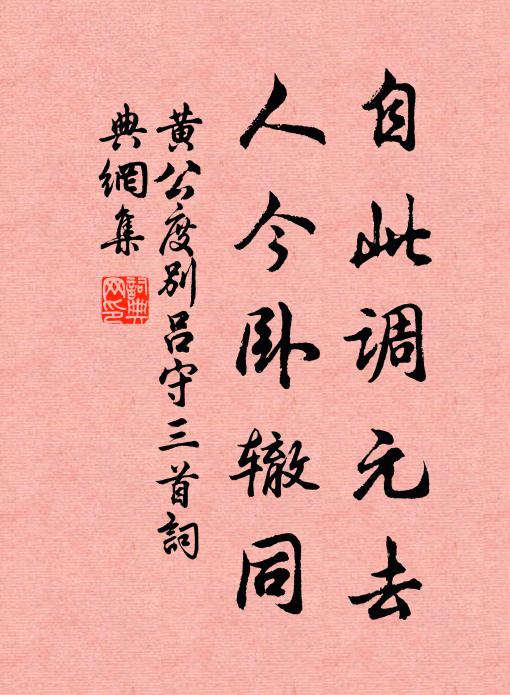 自此调元去
人今卧辙同
黄公度别吕守三首詞
典網集
詞典网印